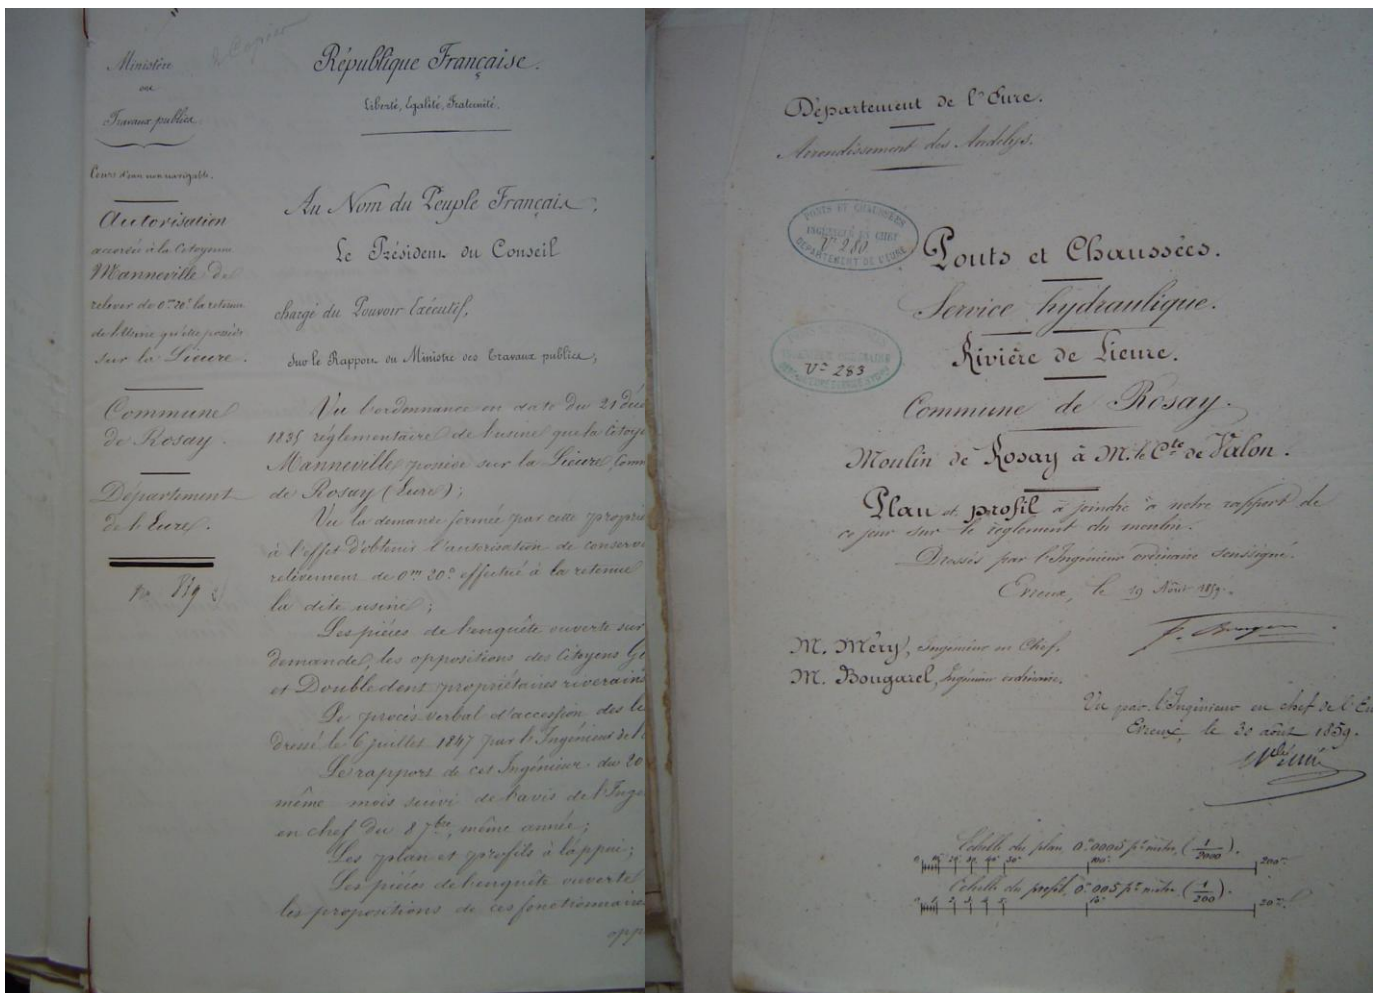 à Copier
Ministère
des
Travaux publics
Cours d'eau non navigable.
Autorisation
accordée à la Citoyenne
Manneville de
relever de 0m 20c la retenue
de l'Usine qu'elle possède
sur la Lieure.
Commune
de Rosay.
Département
de l'Eure.
République Française.
Liberté, Egalité, Fraternité.
Au Nom du Peuple Français,
Le Président du Conseil
chargé du Pouvoir Exécutif,
Sur le Rapport du Ministre des Travaux publics;
Vu l'ordonnance en date du 21 déc
1835 réglementaire de l'usine que la Citoye
Manneville possède sur la Lieure, Comm
de Rosay (Eure);
Vu la demande formée par cette propri
à l'effet d'obtenir l'autorisation de conserv
relèvement de 0m 20c effectué à la retenue
la dite usine;
Les pièces de l'enquête ouverte sur
demande, les oppositions des Citoyens
et Doubledent propriétaires riverains
Le procès verbal d'accession des li
dressé le 6 juillet 1847 par l'Ingénieur de l'
Le rapport de cet Ingénieur du 20
même mois suivi de l'avis de l'Inge
en chef du 8 7bre même année;
Les plan et profils à l'appui;
Les pièces de l'enquête ouverte
les propositions de ces fonctionnaires
opp
Département de l'Eure.
Arrondissement des Andelys.
PONTS ET CHAUSSÉES
INGÉNIEUR EN CHEF
V° 280
DÉPARTEMENT DE L'EURE
INGÉNIEUR ORDINAIRE
V° 283
Ponts et Chaussées.
Service hydraulique.
Rivière de Lieure.
Commune de Rosay.
Moulin de Rosay à M. le Cte de Valon.
Plan et profil à joindre à notre rapport de
ce jour sur le règlement du moulin.
Dressés par l'Ingénieur ordinaire soussigné.
Evreux, le 19 Août 1859.
M. Méry, Ingénieur en Chef.
M. Bougarel, Ingénieur ordinaire.
Vu par l'Ingénieur en chef de l'Eu
Evreux, le 30 août 1859.
Echelle du plan 0m.0005 pr mètre, (1/2000).
0 10 20 30 40 50 100 200
Echelle du profil, 0m.005 pr mètre (1/200).
0 1 2 3 4 5 10 20